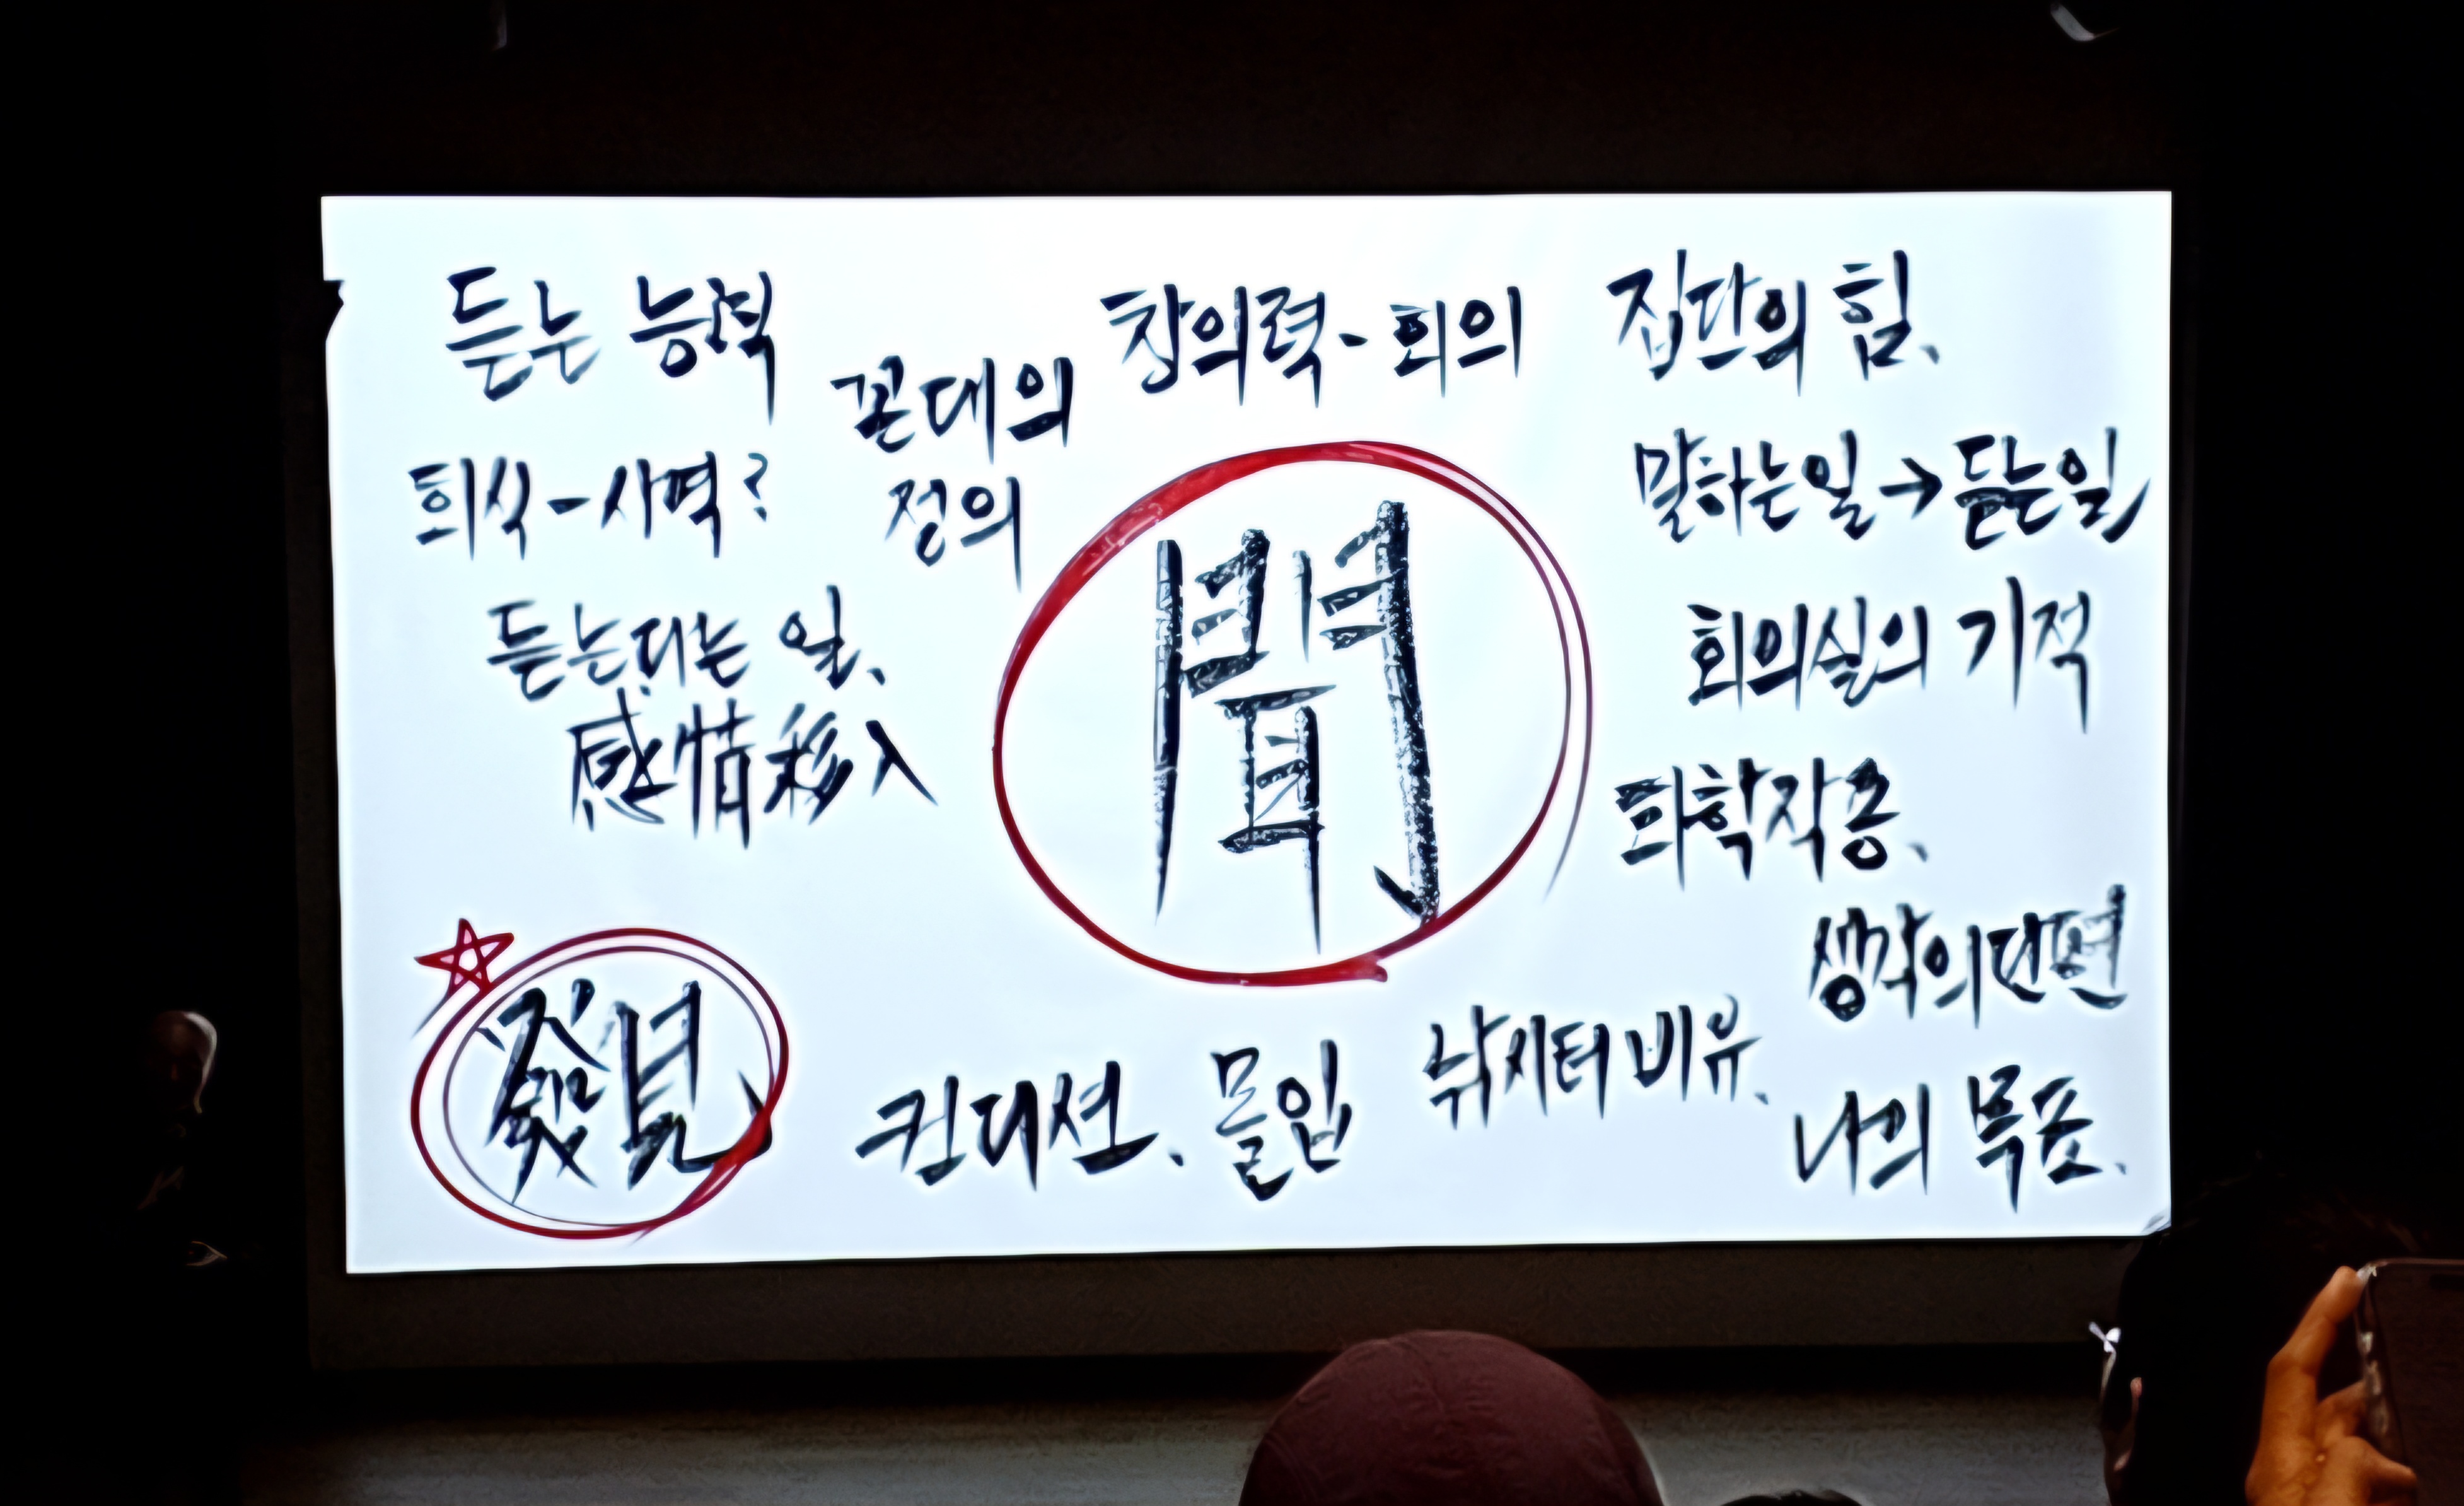 듣는 능력
회식-사역?
듣는다는 일.
感情移入
發見
꼰대의
정의
창의력-회의
聞
컨디션. 몰입
집단의 힘.
말하는일→듣는일
회의실의 기적
화학작용.
생각의단편
낚시터 비유.
나의 목표.